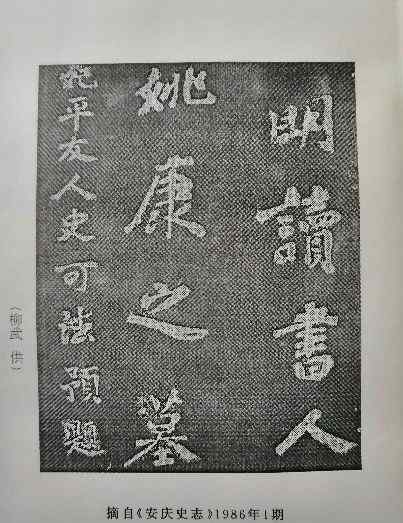 明讀書人
姚康之墓
平友人史可法預題
（柳武 供）
摘自《安庆史志》1986年1期